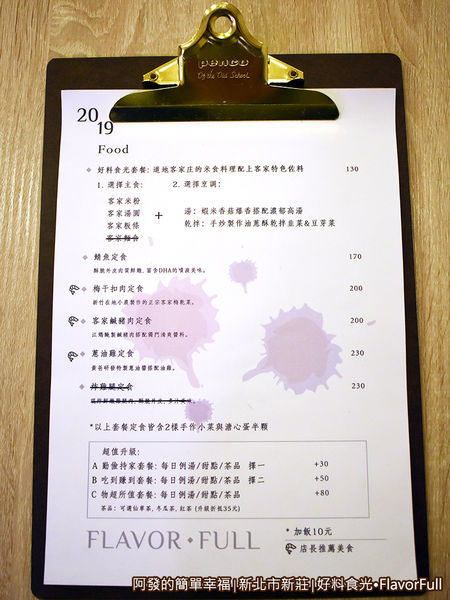 penco
Of the Old School.
20
19
Food
好料食光套餐: 道地客家庄的米食料理配上客家特色佐料 130
1. 選擇主食: 2. 選擇烹調:
客家米粉
客家湯圓
客家粄條
客家麵食
+
湯: 蝦米香菇爆香搭配濃郁高湯
乾拌: 手炒製作油蔥酥乾拌韭菜&豆芽菜
鯖魚定食 170
酥脆外皮肉質鮮嫩, 富含DHA的噴波美味。
梅干扣肉定食 200
新竹在地小農製作的正宗客家梅乾菜。
客家鹹豬肉定食 200
江媽醃製鹹豬肉搭配獨門清爽醬料。
蔥油雞定食 230
黃爸研發特製蔥油醬搭配油雞。
炸雞腿定食 230
*以上套餐定食皆含2樣手作小菜與溏心蛋半顆
超值升級:
A 勤儉持家套餐: 每日例湯/甜點/茶品 擇一 +30
B 吃到賺到套餐: 每日例湯/甜點/茶品 擇二 +50
C 物超所值套餐: 每日例湯/甜點/茶品 +80
茶品: 可選仙草茶, 冬瓜茶, 紅茶 (升級折抵35元)
FLAVOR·FULL
* 加飯10元
店長推薦美食
阿發的簡單幸福|新北市新莊|好料食光•FlavorFull